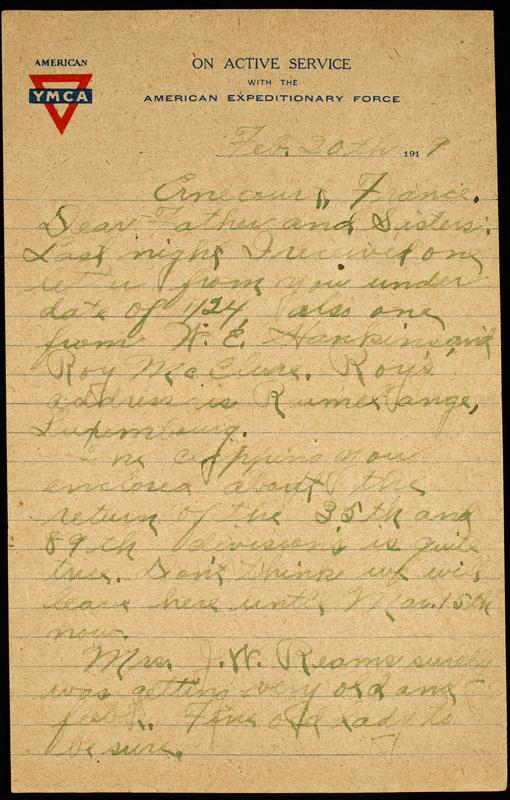 AMERICAN
YMCA
ON ACTIVE SERVICE
WITH THE
AMERICAN EXPEDITIONARY FORCE
Feb. 20th 1919
Ernecourt, France.
Dear Father and Sisters:
Last night I received one
letter from you under
date of 1/24, also one
from W. E. Hankins and
Roy McClure. Roy's
address is Rumelange,
Luxemburg.
The clipping you
enclosed about the
return of the 35th and
89th divisions is quite
true. Don't think we will
leave here until Mar. 15th
now.
Mrs. J.W. Reams surely
was getting very old and
feeble. Fine old lady to
be sure.